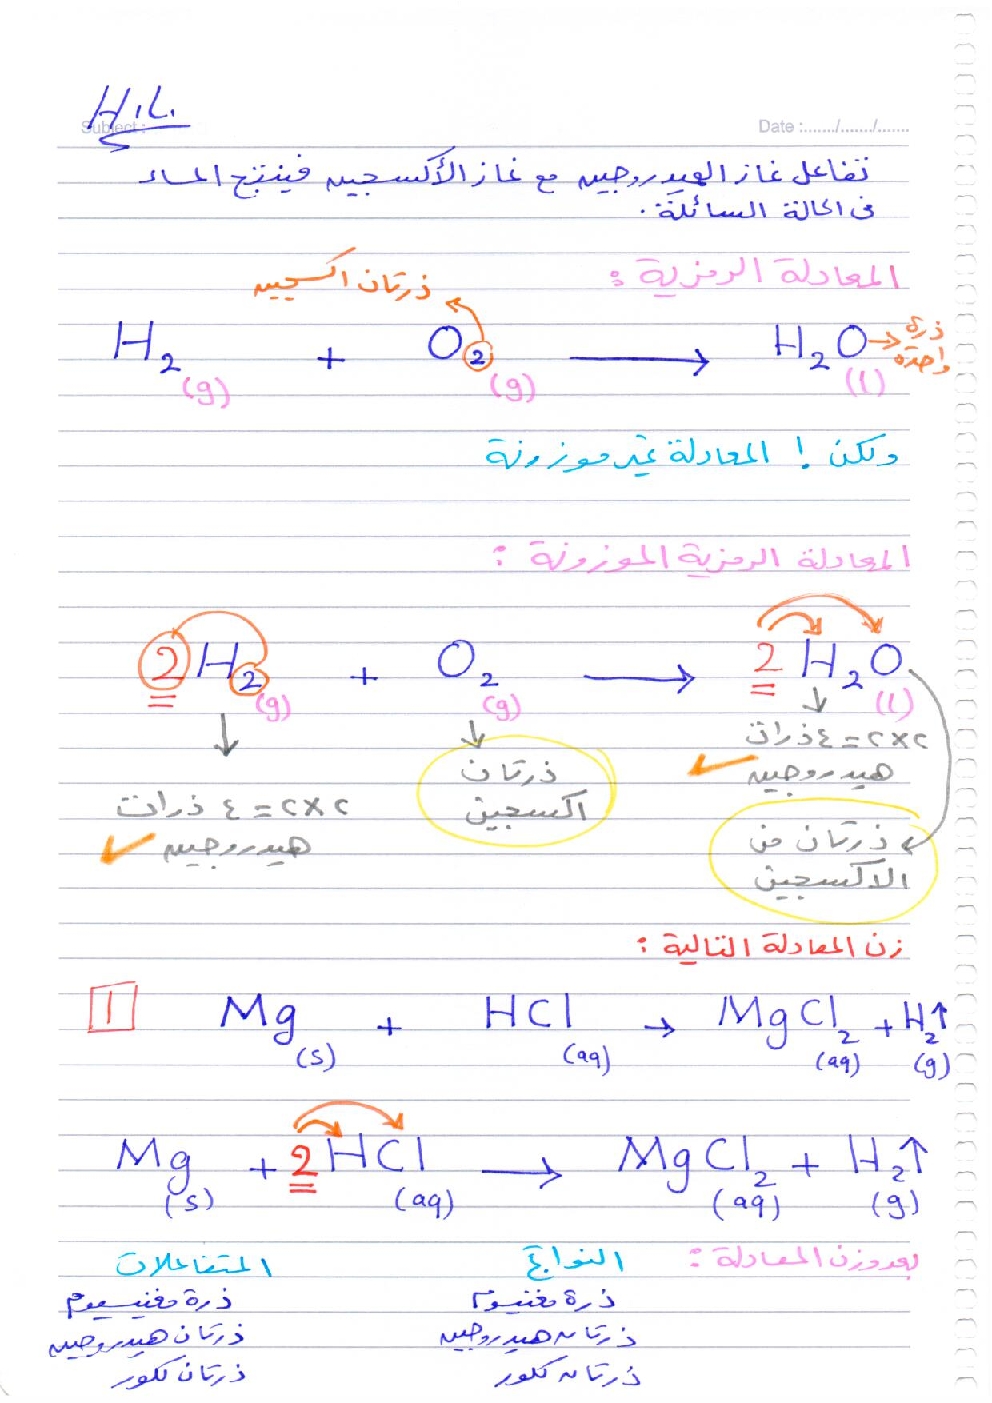 H.L.
Subject :
Date :......./......./.......
تفاعل غاز الهيدروجين مع غاز الأكسجين فينتج الماء
في الحالة السائلة.
المعادلة الرمزية :
ذرتان اكسجين
H₂(g) + O₂(g) ⟶ H₂O(l)
ذرة
واحدة
ولكن ! المعادلة غير موزونة
المعادلة الرمزية الموزونة :
2H₂(g) + O₂(g) ⟶ 2H₂O(l)
٢×٢ = ٤ ذرات
هيدروجين
ذرتان
اكسجين
٢×٢ = ٤ ذرات
هيدروجين
ذرتان من
الاكسجين
زن المعادلة التالية :
1 Mg(s) + HCl(aq) → MgCl₂(aq) + H₂↑(g)
Mg(s) + 2HCl(aq) ⟶ MgCl₂(aq) + H₂↑(g)
بعد وزن المعادلة : النواتج المتفاعلات
ذرة مغنيسيوم ذرة مغنيسيوم
ذرتان هيدروجين ذرتان هيدروجين
ذرتان كلور ذرتان كلور